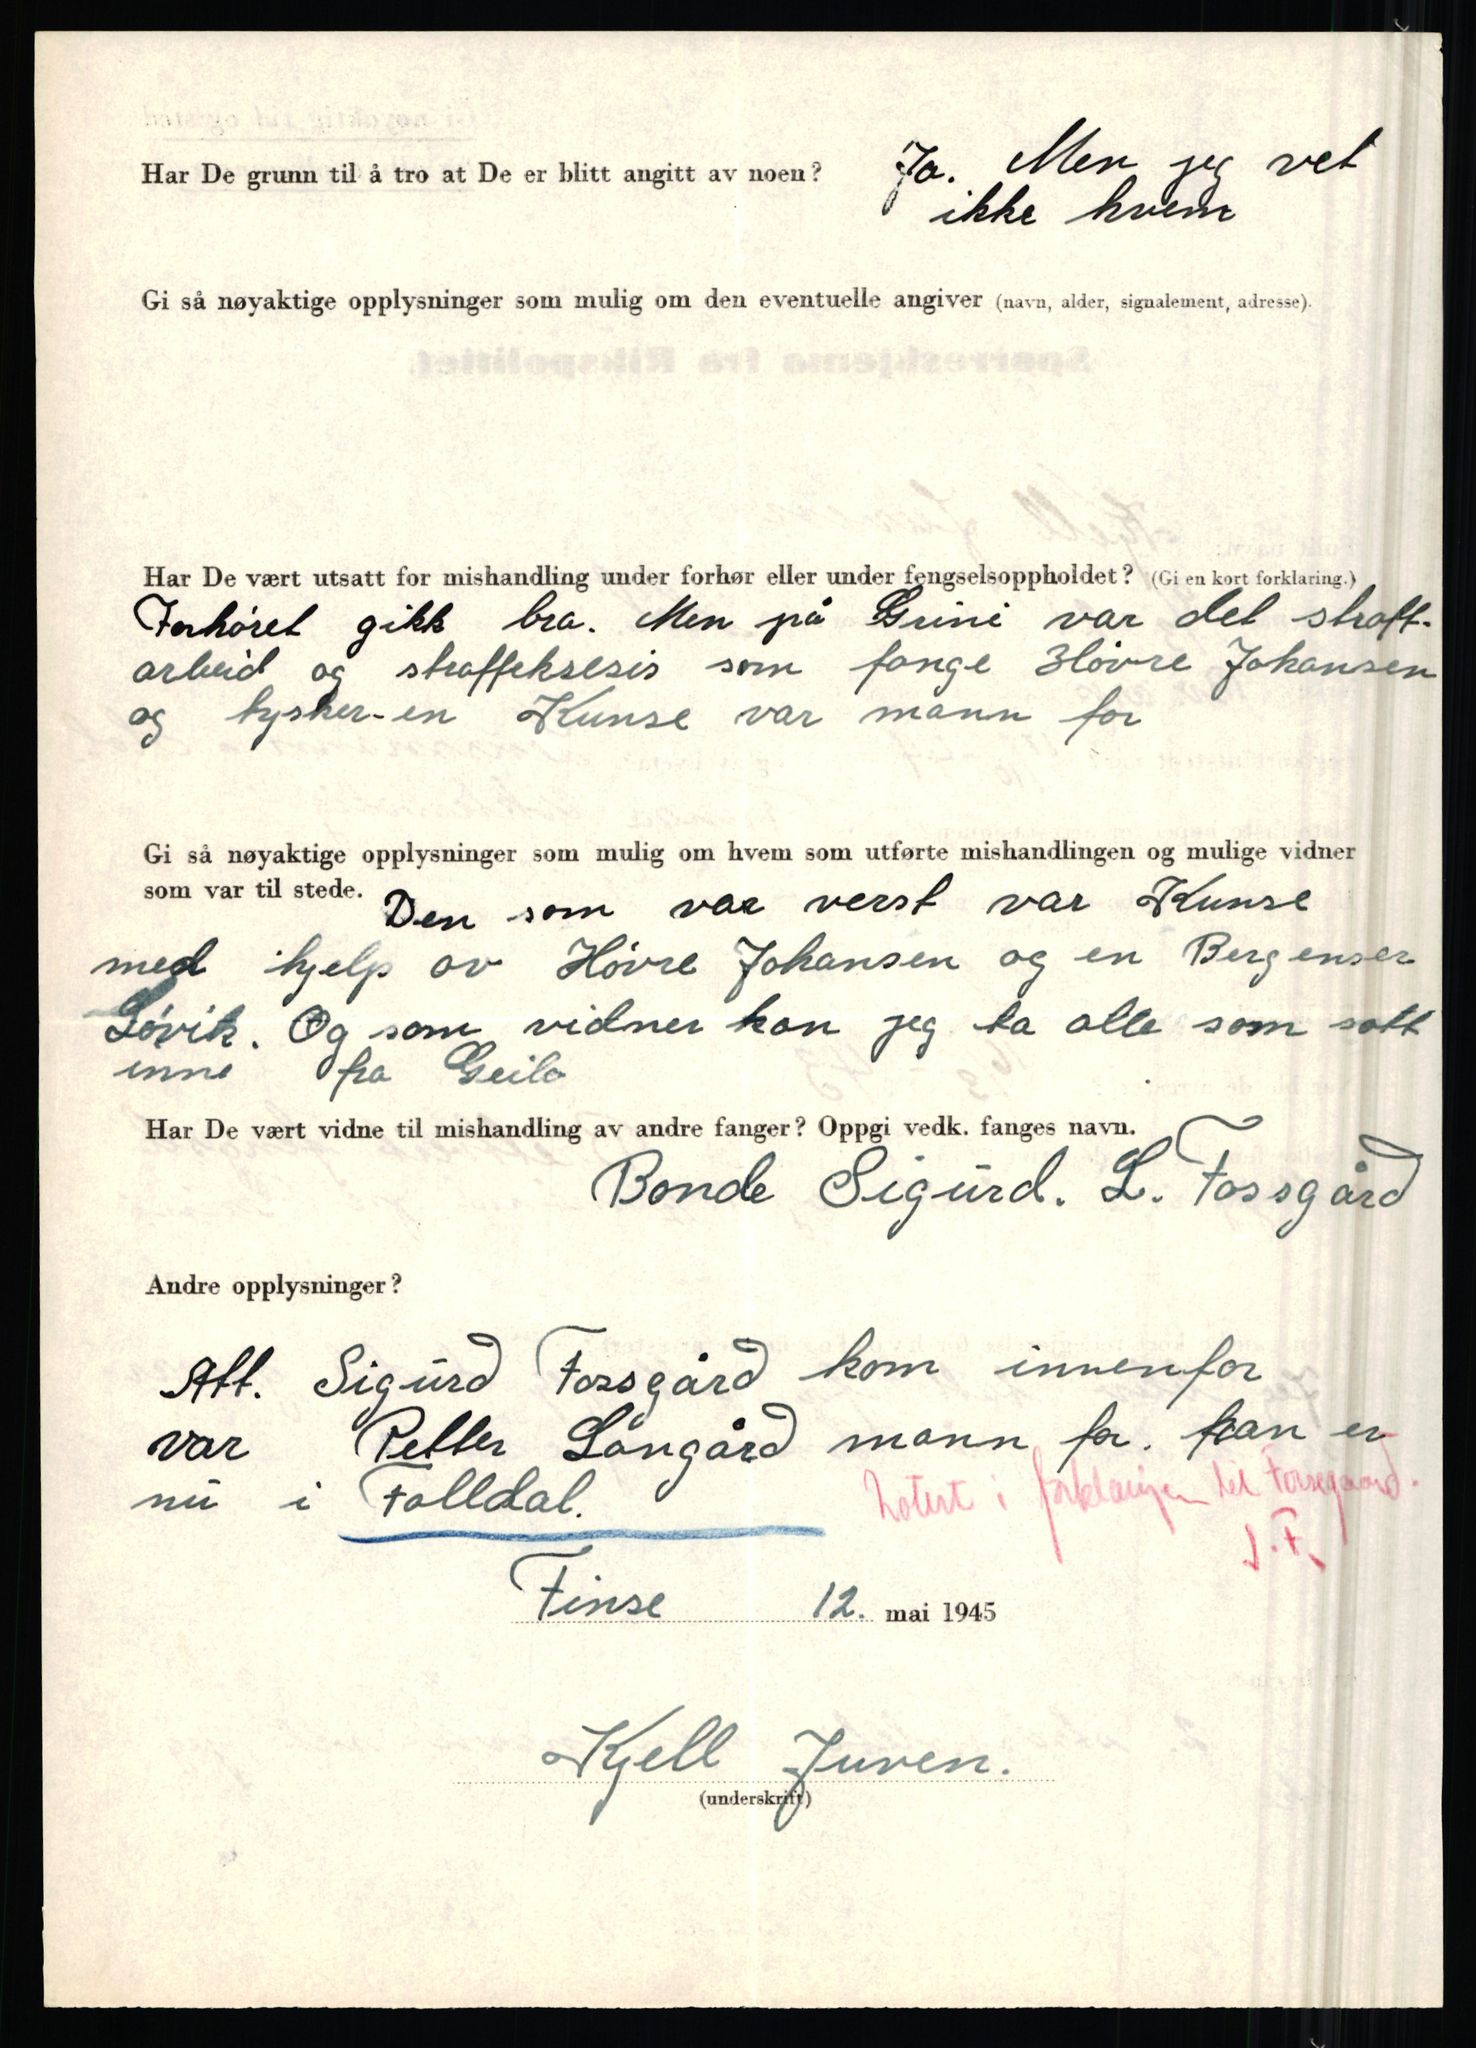 Har De grunn til å tro at De er blitt angitt av noen? Ja. Men jeg vet
ikke hvem
Gi så nøyaktige opplysninger som mulig om den eventuelle angiver (navn, alder, signalement, adresse).
Har De vært utsatt for mishandling under forhør eller under fengselsoppholdet? (Gi en kort forklaring.)
Forhøret gikk bra. Men på Grini var det straff-
arbeid og straffeksesis som fange Høvre Johansen
og tysker-en Kunse var mann for
Gi så nøyaktige opplysninger som mulig om hvem som utførte mishandlingen og mulige vidner
som var til stede. Den som var verst var Kunse
med hjelp av Høvre Johansen og en Bergenser
Løvik. Og som vidner kan jeg ta alle som satt
inne fra Geilo
Har De vært vidne til mishandling av andre fanger? Oppgi vedk. fanges navn.
Bonde Sigurd. L. Fossgård
Andre opplysninger?
Att. Sigurd Fossgård kom innenfor
var Petter Långård mann for. han er
nu i Folldal.
Notert i forklaringen til Fossgaard.
J.F.
Finse 12. mai 1945
Kjell Juven.
(underskrift)